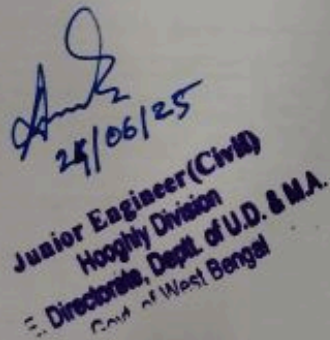 25/06/25
Junior Engineer (Civil)
Hooghly Division
E. Directorate, Deptt. of U.D. & M.A.
Govt. of West Bengal